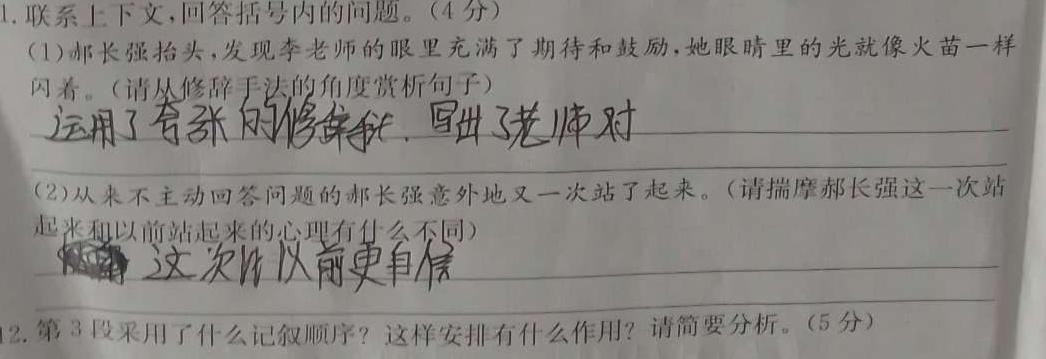 1. 联系上下文,回答括号内的问题。(4分)
(1)郝长强抬头,发现李老师的眼里充满了期待和鼓励,她眼睛里的光就像火苗一样
闪着。(请从修辞手法的角度赏析句子)
运用了夸张的修辞手法.写出了老师对
(2)从来不主动回答问题的郝长强意外地又一次站了起来。(请揣摩郝长强这一次站
起来和以前站起来的心理有什么不同)
这次比以前更自信
12. 第3段采用了什么记叙顺序?这样安排有什么作用?请简要分析。(5分)